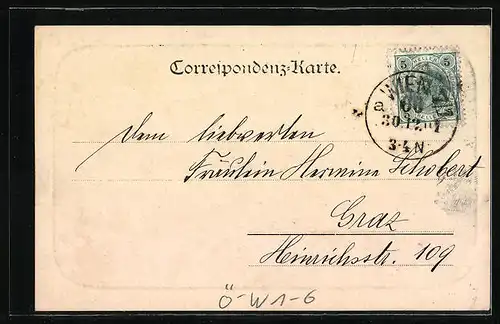 Correspondenz-Karte.
5 5
WIEN
a
60
30.12.01
3-4 N
dem liebwerten
Fräulein Hermine Schobert
Graz
Heinrichsstr. 109
Ö-W1-6